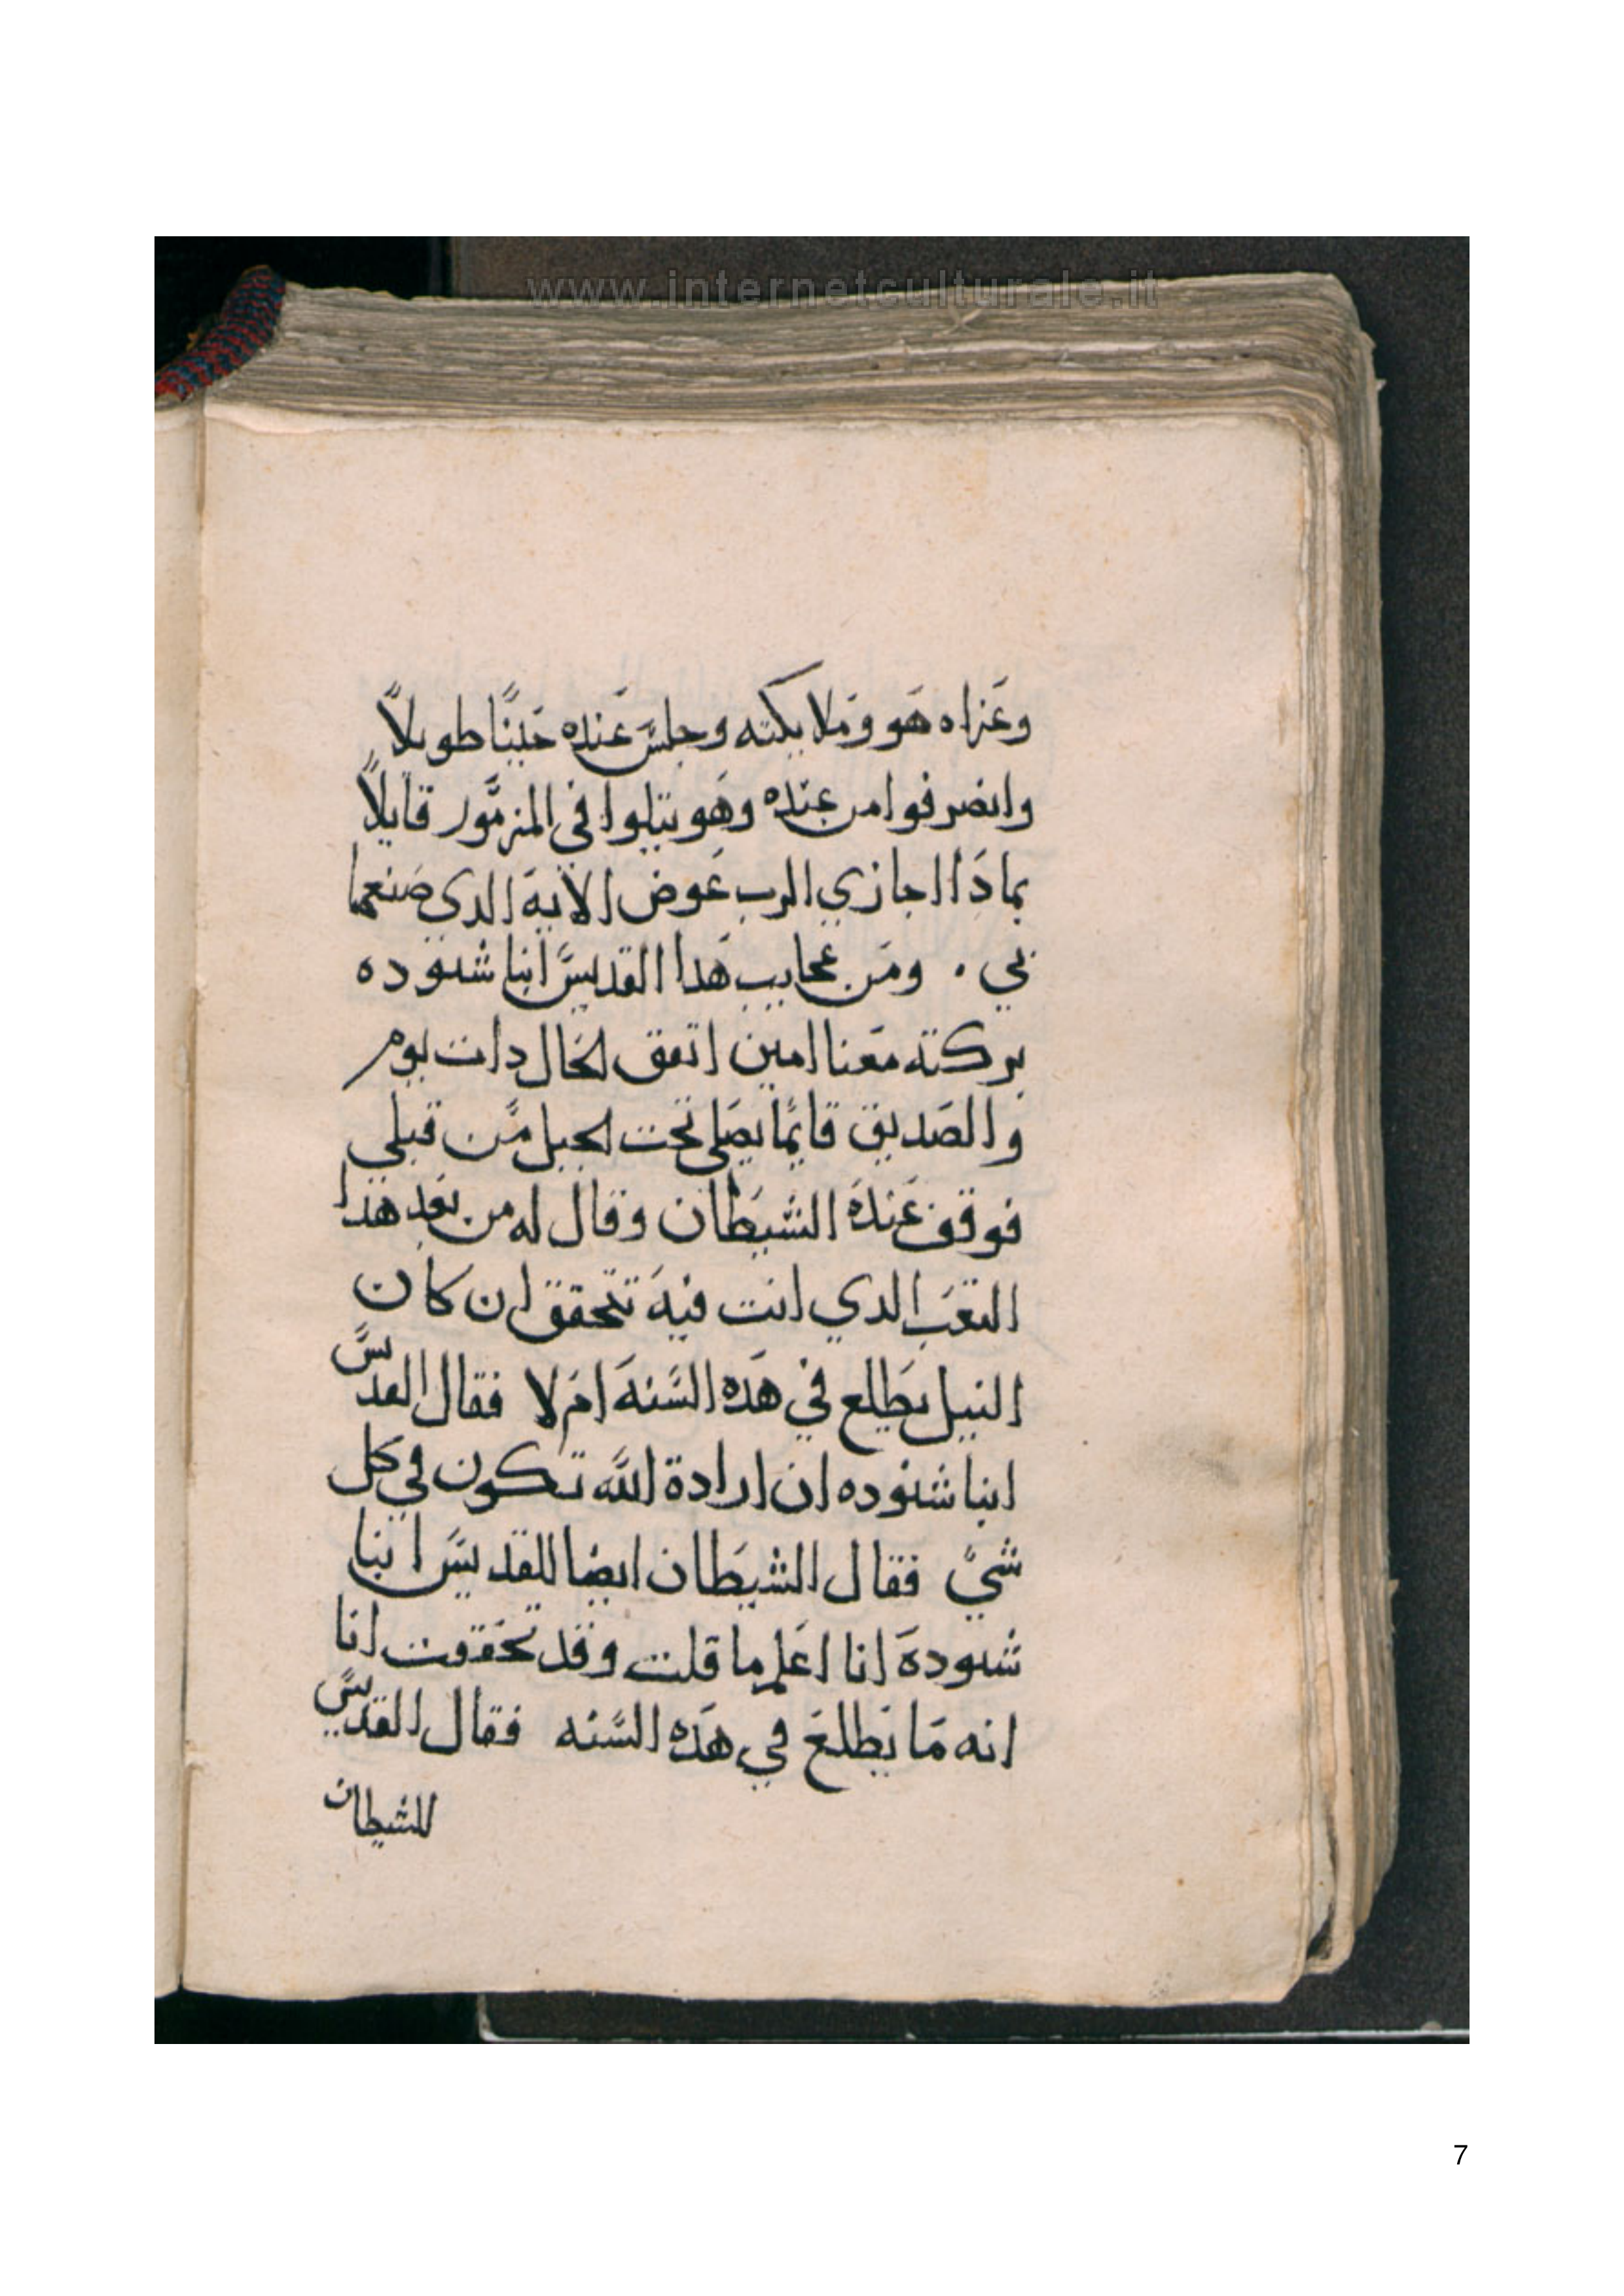 www.internetculturale.it
وعزاه هو وملايكته وجلس عنده حينًا طويلاً
وانصرفوا من عنده وهو يتلوا في المزمور قايلاً
بمادا اجازي الرب عوض الاية الدي صنعها
بي . ومن عجايب هدا القديس انبا شنوده
بركته معنا امين اتفق الحال دات يوم
والصديق قايمًا يصلي تحت الجبل من قبلي
فوقف عنده الشيطان وقال له من بعد هدا
التعب الدي انت فيه تتحقق ان كان
النيل يطلع في هده السنة ام لا فقال القديس
انبا شنوده ان ارادة الله تكون في كل
شيً فقال الشيطان ايضا للقديس انبا
شنودة انا اعلم ما قلت وقد تحققت انا
انه ما يطلع في هده السنه فقال القديس
للشيطان
7